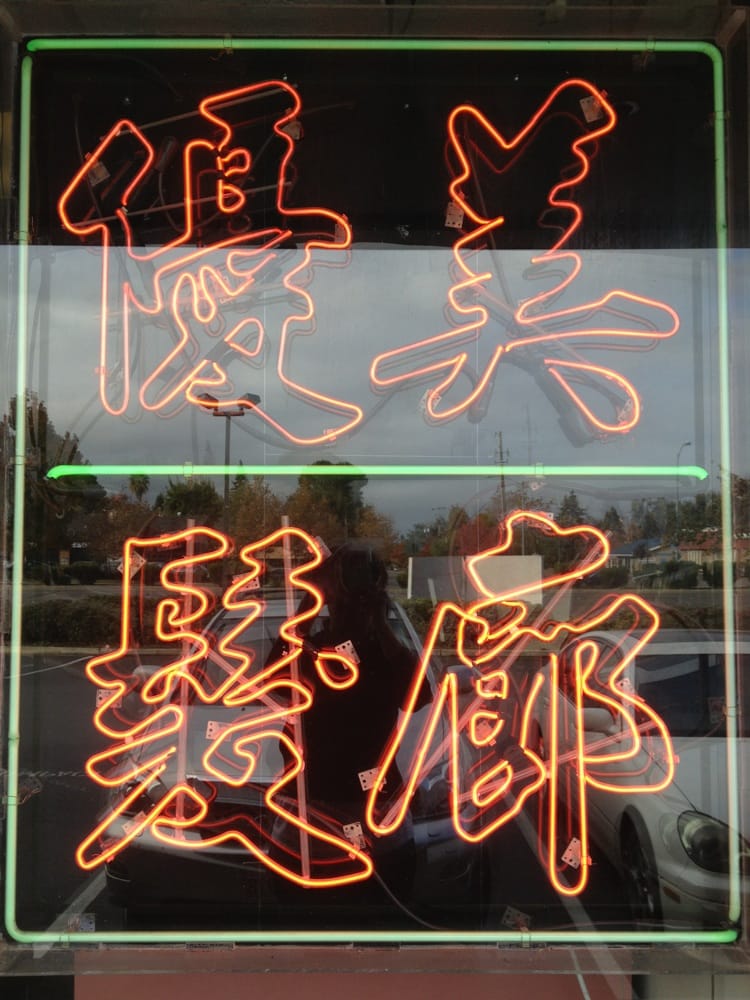 優美
髮廊